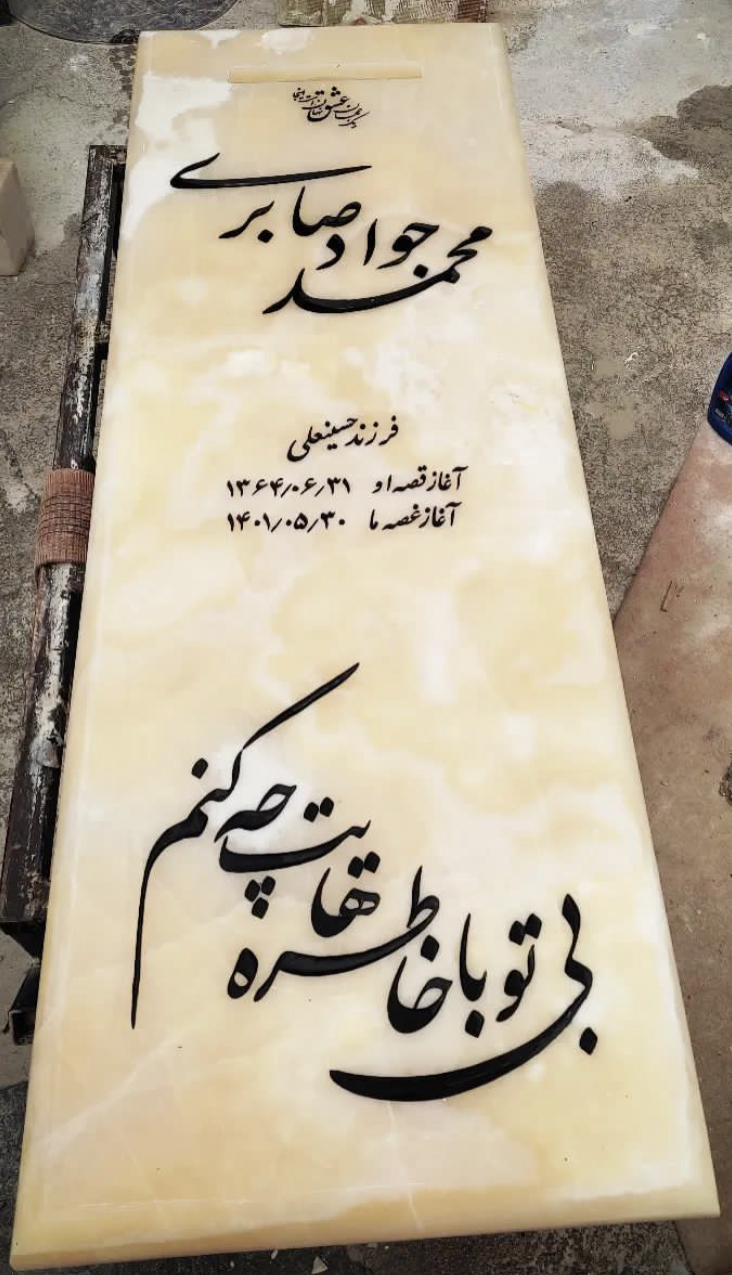 عشق
محمد جواد صابری
فرزند حسینعلی
آغاز قصه او ۱۳۶۴/۰۶/۳۱
آغاز غصه ما ۱۴۰۱/۰۵/۳۰
بی تو با خاطره هایت چه کنم